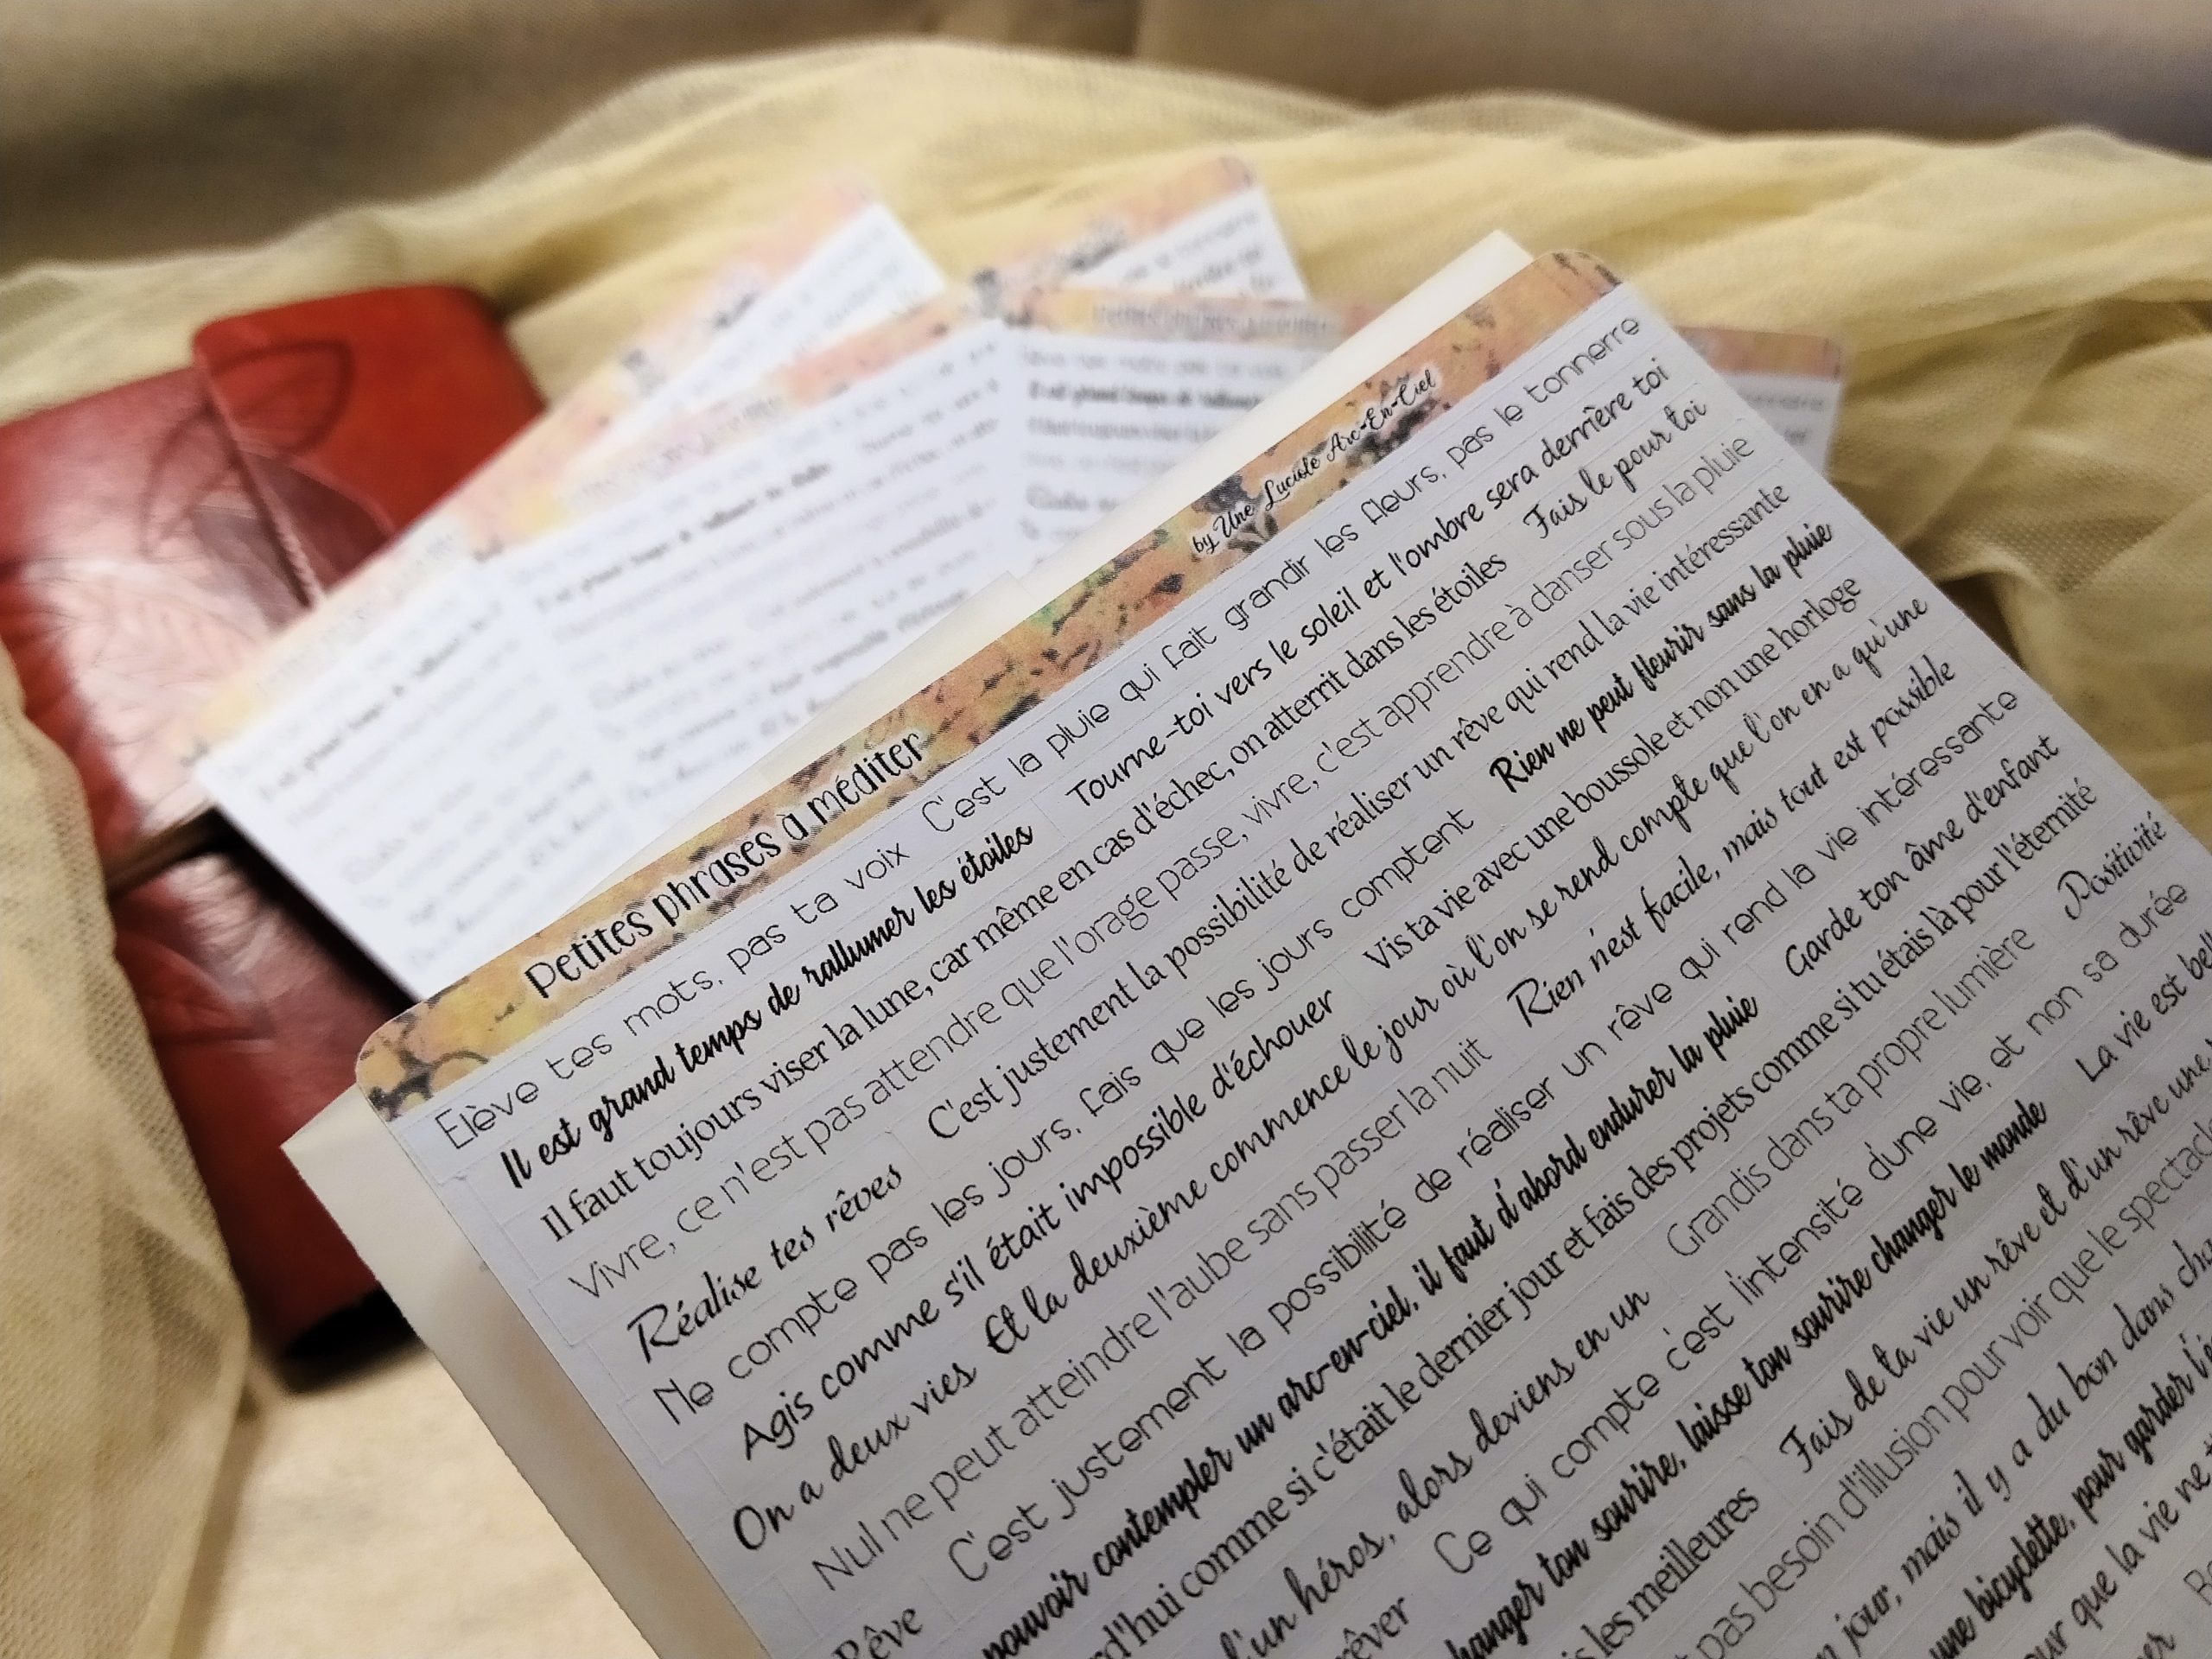 Petites phrases à méditer
by Une Luciole Arc-En-Ciel
Elève tes mots, pas ta voix C'est la pluie qui fait grandir les fleurs, pas le tonnerre
Il est grand temps de rallumer les étoiles Tourne-toi vers le soleil et l'ombre sera derrière toi
Il faut toujours viser la lune, car même en cas d'échec, on atterrit dans les étoiles Fais le pour toi
Vivre, ce n'est pas attendre que l'orage passe, vivre, c'est apprendre à danser sous la pluie
Réalise tes rêves C'est justement la possibilité de réaliser un rêve qui rend la vie intéressante
Ne compte pas les jours, fais que les jours comptent Rien ne peut fleurir sans la pluie
Agis comme s'il était impossible d'échouer Vis ta vie avec une boussole et non une horloge
On a deux vies Et la deuxième commence le jour où l'on se rend compte que l'on en a qu'une
Nul ne peut atteindre l'aube sans passer la nuit Rien n'est facile, mais tout est possible
Rêve C'est justement la possibilité de réaliser un rêve qui rend la vie intéressante
pouvoir contempler un arc-en-ciel, il faut d'abord endurer la pluie Garde ton âme d'enfant
rd'hui comme si c'était le dernier jour et fais des projets comme si tu étais là pour l'éternité
l'un héros, alors deviens en un Grandis dans ta propre lumière Positivité
rêver Ce qui compte c'est l'intensité d'une vie, et non sa durée
hanger ton sourire, laisse ton sourire changer le monde La vie est bel
les meilleures Fais de ta vie un rêve et d'un rêve une
pas besoin d'illusion pour voir que le spectac
jour, mais il y a du bon dans cha
une bicyclette, pour garder l'é
our que la vie ne